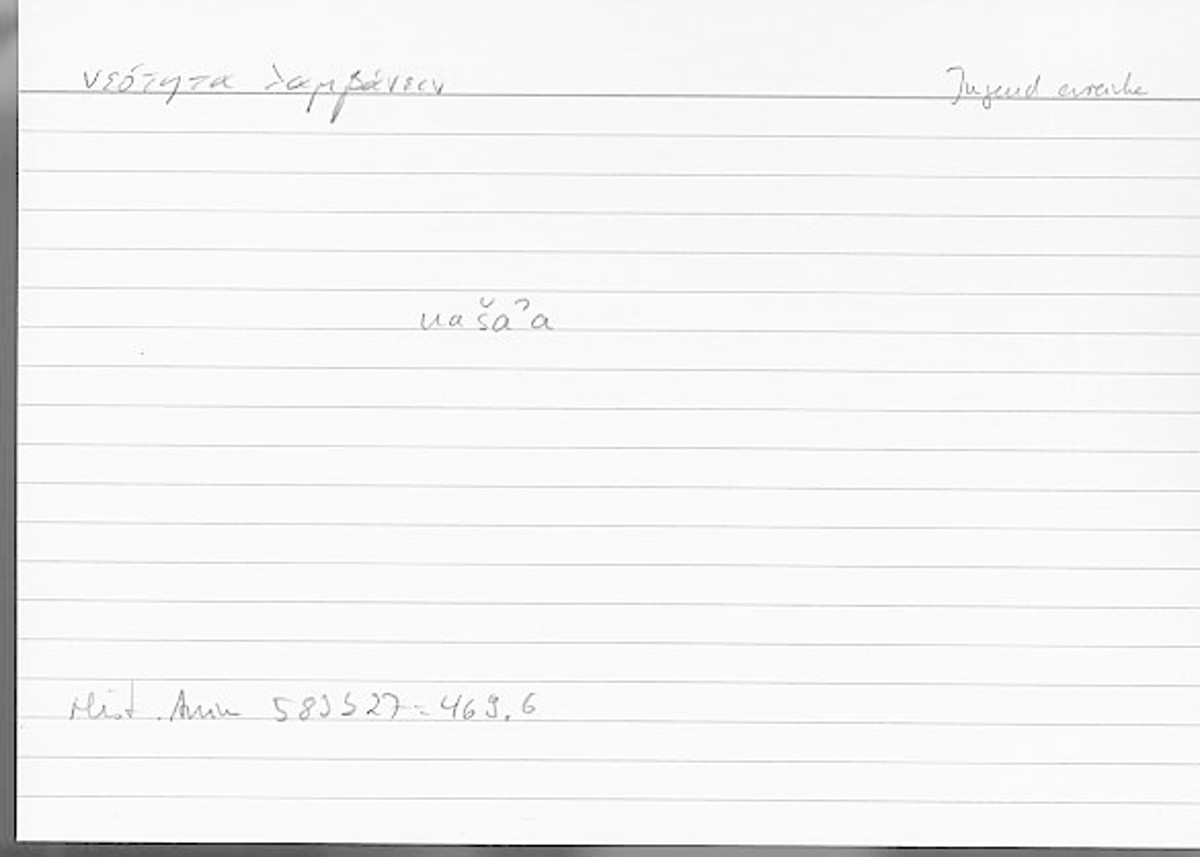 νεότητα λαμβάνειν Jugend erreiche
našaʾa
Hist. Anim 583b27 = 469.6